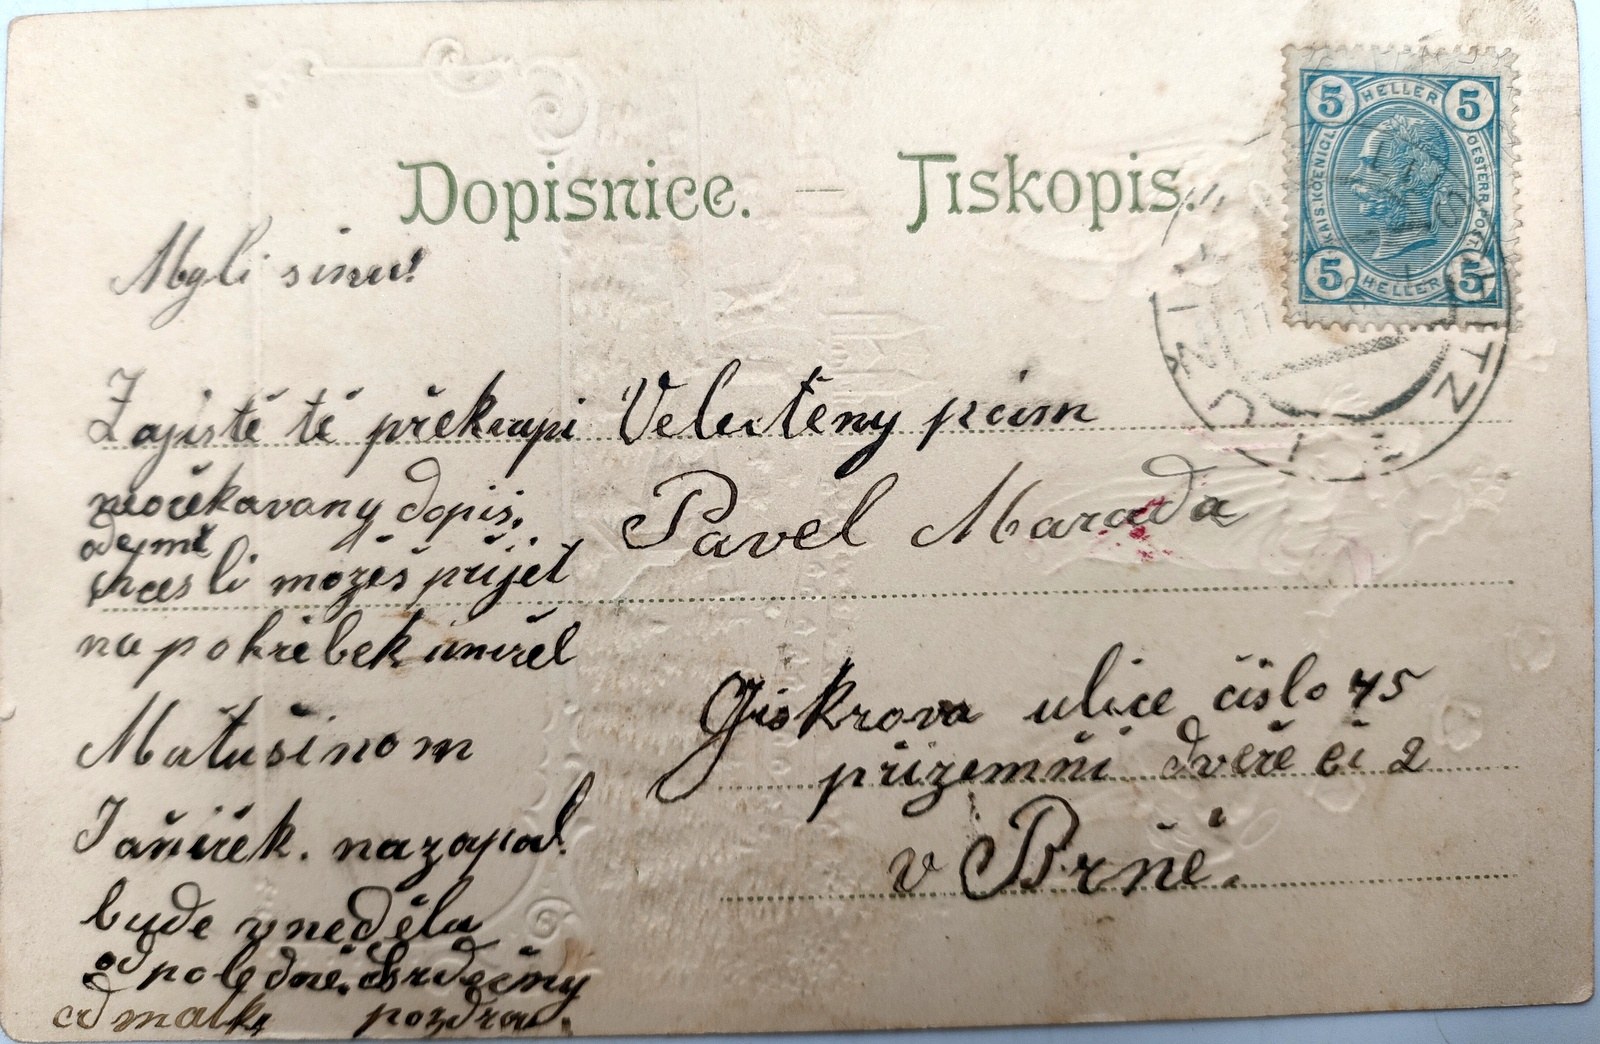 Dopisnice. — Tiskopis.
5 HELLER 5
KAIS. KOENIGL. OESTERR. POST.
5 HELLER 5
Myli sinu!
Zajistě tě překvapi
neočekavany dopis.
odemě
chces li možeš přijet
na pohřebek umřel
Matušinom
Janiček. nazapal
bude vneděla
odpoledně. Srdečny
od matky pozdrav.
Velectěny pam
Pavel Marada
Giskrova ulice čislo 45
přizemni dveře či 2
v Brně.